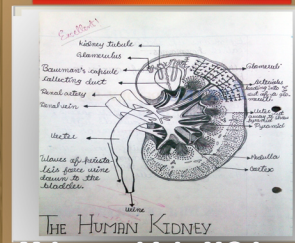 Excellent!
Kidney tubule
Glomerulus
Bowman's capsule
collecting duct
Renal artery
Renal vein
Ureter
Waves of perista-
lsis force urine
down to the
bladder.
urine
Glomeruli
Arterioles
leading into &
out of a glo-
meruli
Pyramid
Medulla
Cortex
THE HUMAN KIDNEY